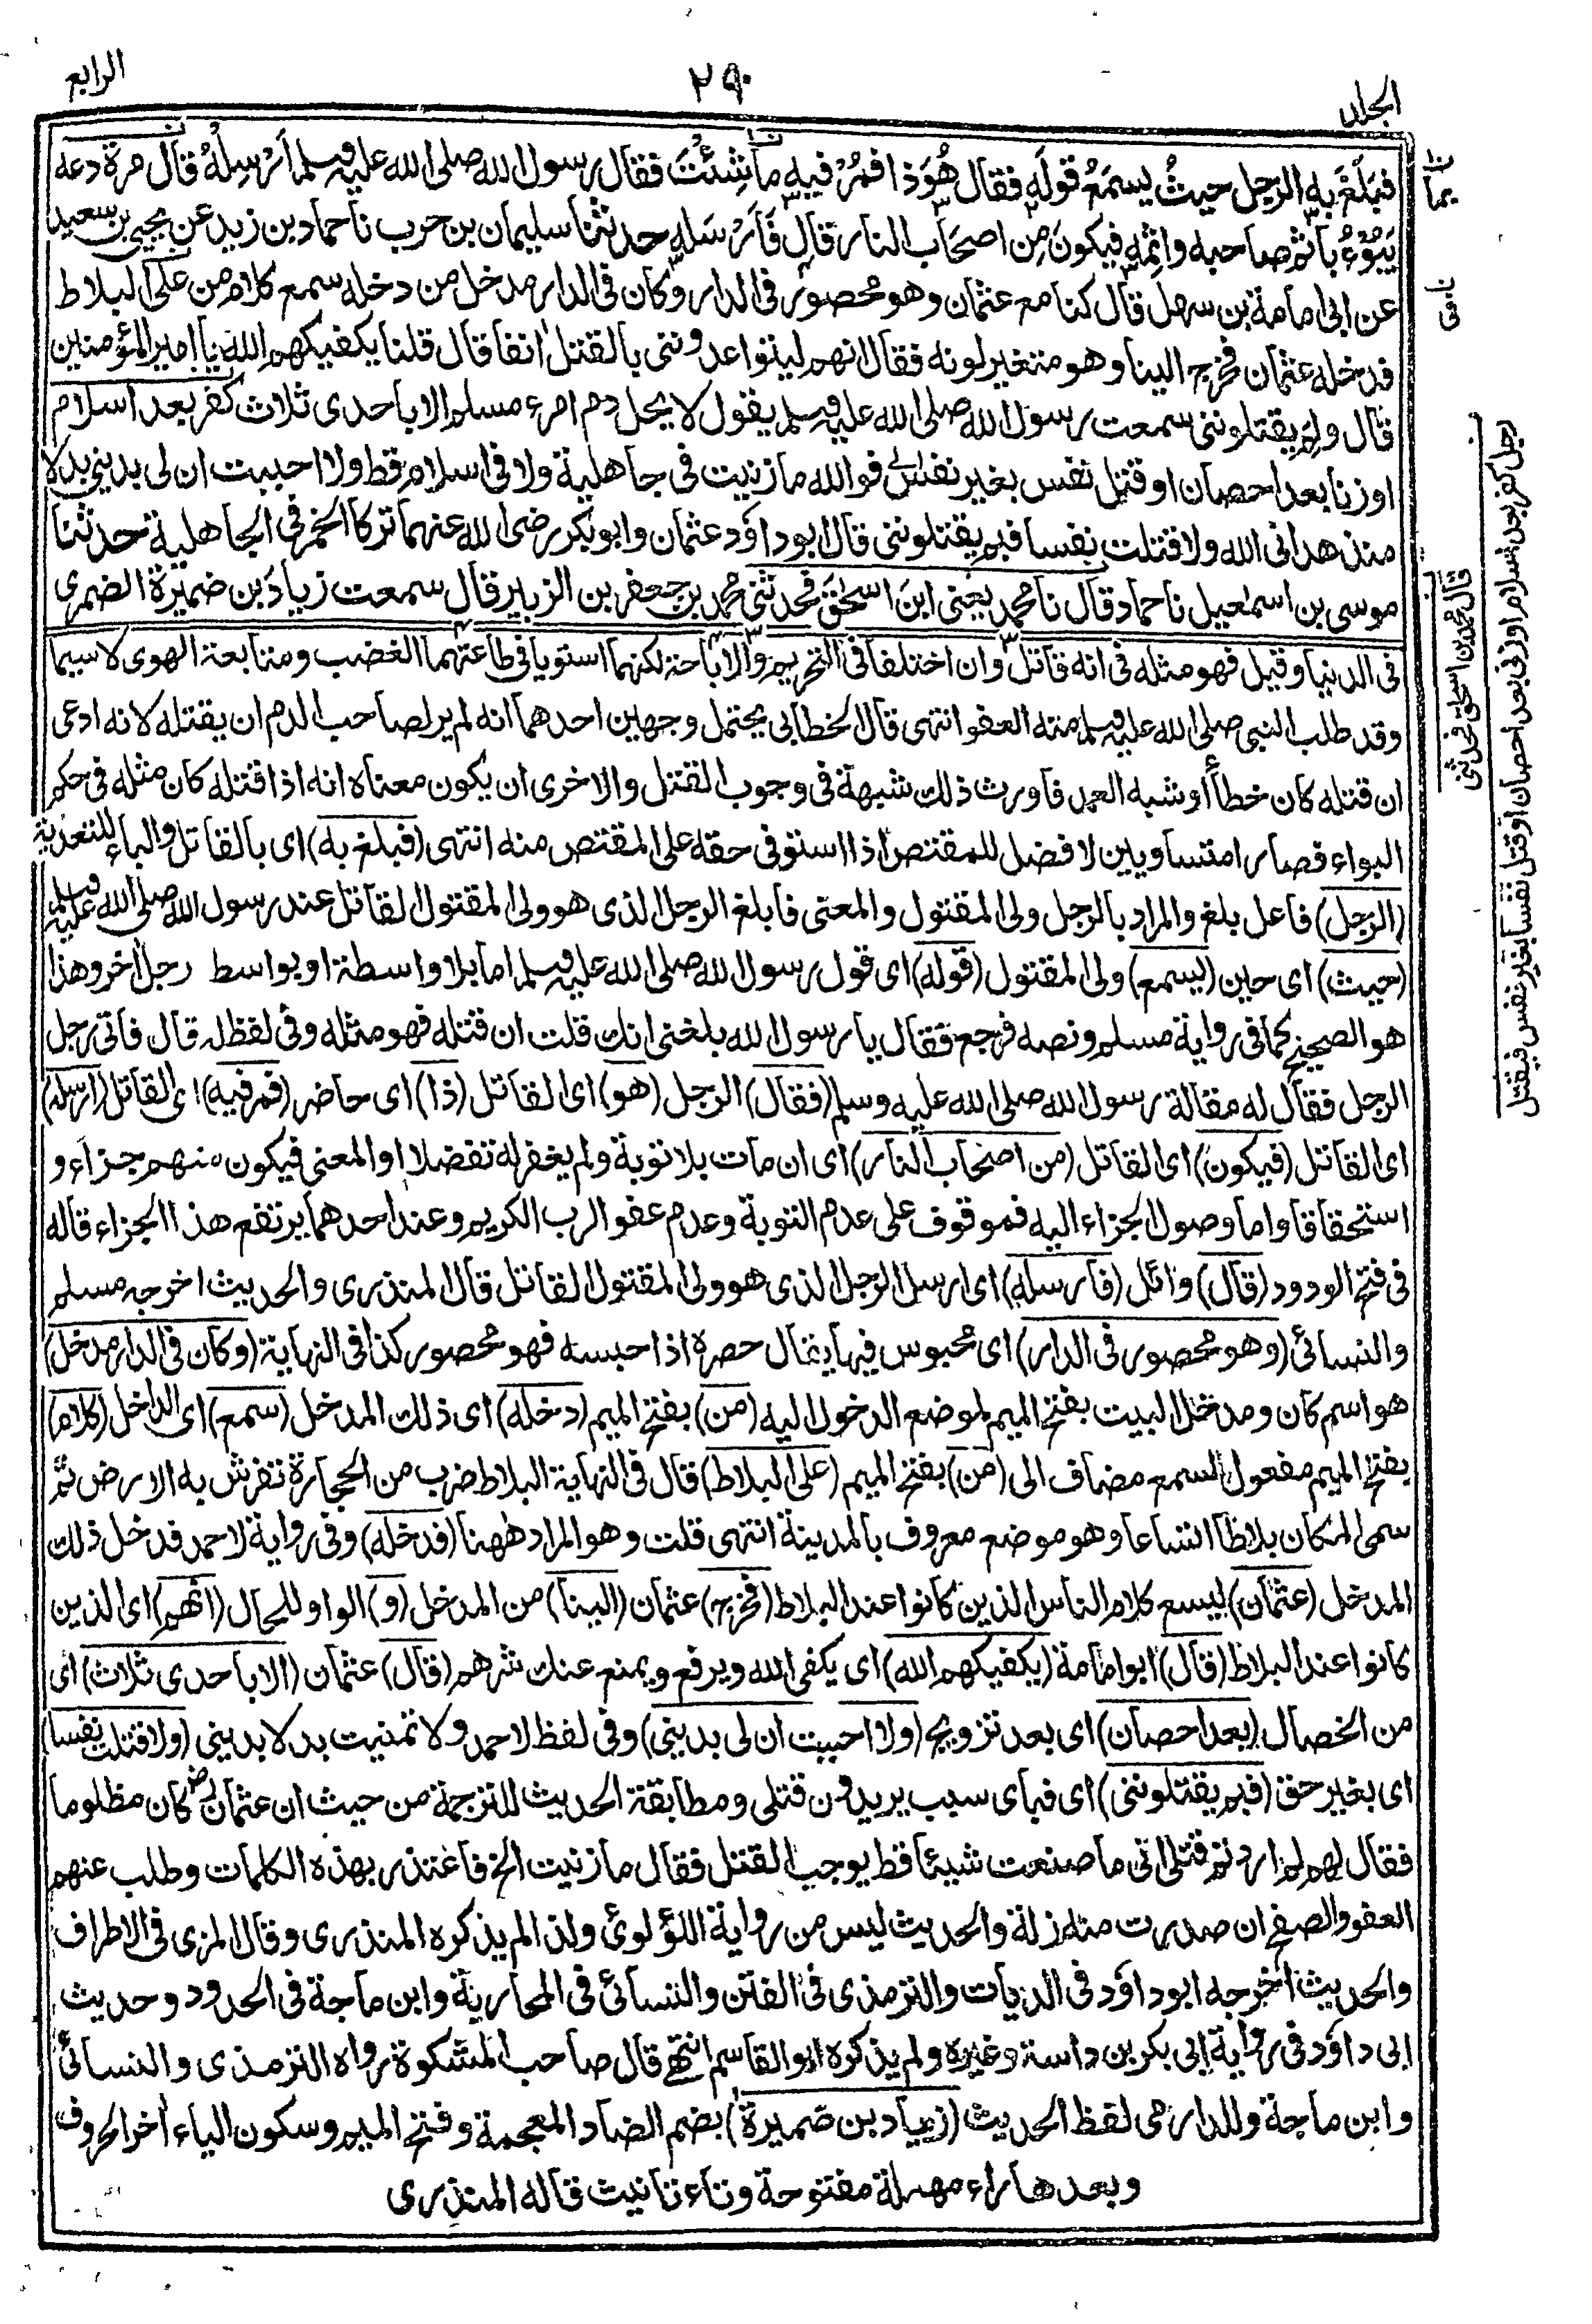 الجلد
٢٩٠
الرابع
فبلغ به الرجل حيث يسمع قوله فقال هو ذا فمر فيه ما شئت فقال رسول الله صلى الله عليه وسلم ارسله قال مرة دعه
يبوء باثم صاحبه واثمه فيكون من اصحاب النار قال فارسله حدثنا سليمان بن حرب نا حماد بن زيد عن يحيى بن سعيد
عن ابى امامة بن سهل قال كنا مع عثمان وهو محصور فى الدار وكان فى الدار مدخل من دخله سمع كلام من على البلاط
فدخله عثمان فخرج الينا وهو متغير لونه فقال انهم ليتواعدوننى بالقتل انفا قال قلنا يكفيكهم الله يا امير المؤمنين
قال ولم يقتلوننى سمعت رسول الله صلى الله عليه وسلم يقول لا يحل دم امرء مسلم الا باحدى ثلاث كفر بعد اسلام
او زنا بعد احصان او قتل نفس بغير نفس فوالله ما زنيت فى جاهلية ولا فى اسلام قط ولا احببت ان لى بدينى بدلا
منذ هدانى الله ولا قتلت نفسا فبم يقتلوننى قال ابو داؤد عثمان وابو بكر رضى الله عنهما تركا الخمر فى الجاهلية حدثنا
موسى بن اسمعيل نا حماد قال نا محمد يعنى ابن اسحق فحدثنى محمد بن جعفر بن الزبير قال سمعت زياد بن ضميرة الضمرى
فى الدنيا وقيل فهو مثله فى انه قاتل وان اختلفا فى التحريم والاباحة لكنهما استويا فى طاعتهما الغضب ومتابعة الهوى لا سيما
وقد طلب النبى صلى الله عليه وسلم منه العفو انتهى قال الخطابى يحتمل وجهين احدهما انه لم ير لصاحب الدم ان يقتله لانه ادعى
ان قتله كان خطأ أو شبه العمد فاورث ذلك شبهة فى وجوب القتل والاخرى ان يكون معناه انه اذا قتله كان مثله فى حكم
البواء فصارا متساويين لا فضل للمقتص اذا استوفى حقه على المقتص منه انتهى (فبلغ به) اى بالقاتل والباء للتعدية
(الرجل) فاعل بلغ والمراد بالرجل ولى المقتول والمعنى فابلغ الرجل الذى هو ولى المقتول القاتل عند رسول الله صلى الله عليه وسلم
(حيث) اى حين (يسمع) ولى المقتول (قوله) اى قول رسول الله صلى الله عليه وسلم اما بلا واسطة او بواسط رجل اخر وهذا
هو الصحيح كما فى رواية مسلم ونصه فرجع فقال يا رسول الله بلغنى انك قلت ان قتله فهو مثله وفى لفظ له قال فاتى رجل
الرجل فقال له مقالة رسول الله صلى الله عليه وسلم (فقال) الرجل (هو) اى القاتل (ذا) اى حاضر (فمر فيه) اى القاتل (ارسله)
اى القاتل (فيكون) اى القاتل (من اصحاب النار) اى ان مات بلا توبة ولم يغفر له تفضلا او المعنى فيكون منهم جزاء و
استحقاقا واما وصول الجزاء اليه فموقوف على عدم التوبة وعدم عفو الرب الكريم وعند احدهما يرتفع هذا الجزاء قاله
فى فتح الودود (قال) وائل (فارسله) اى ارسل الرجل الذى هو ولى المقتول القاتل قال المنذرى والحديث اخرجه مسلم
والنسائى (وهو محصور فى الدار) اى محبوس فيها يقال حصره اذا حبسه فهو محصور كذا فى النهاية (وكان فى الدار مدخل)
هو اسم كان ومدخل البيت بفتح الميم لموضع الدخول اليه (من) بفتح الميم (دخله) اى ذلك المدخل (سمع) اى الداخل (كلام)
بفتح الميم مفعول السمع مضاف الى (من) بفتح الميم (على البلاط) قال فى النهاية البلاط ضرب من الحجارة تفرش به الارض ثم
سمى المكان بلاطا اتساعا وهو موضع معروف بالمدينة انتهى قلت وهو المراد ههنا (فدخله) وفى رواية لاحمد فدخل ذلك
المدخل (عثمان) ليسع كلام الناس الذين كانوا عند البلاط (فخرج) عثمان (الينا) من المدخل (و) الواو للحال (انهم) اى الذين
كانوا عند البلاط (قال) ابو امامة (يكفيكهم الله) اى يكفى الله ويرفع ويمنع عنك شرهم (قال) عثمان (الا باحدى ثلاث) اى
من الخصال (بعد احصان) اى بعد تزويج (ولا احببت ان لى بدينى) وفى لفظ لاحمد ولا تمنيت بدلا بدينى (ولا قتلت نفسا)
اى بغير حق (فبم يقتلوننى) اى فباى سبب يريدون قتلى ومطابقة الحديث للترجمة من حيث ان عثمان رض كان مظلوما
فقال لهم لم اردتم قتلى انى ما صنعت شيئا قط يوجب القتل فقال ما زنيت الخ فاعتذر بهذه الكلمات وطلب عنهم
العفو والصفح ان صدرت منه زلة والحديث ليس من رواية اللؤلوئ ولذا لم يذكره المنذرى وقال المزى فى الاطراف
والحديث اخرجه ابو داؤد فى الديات والترمذى فى الفتن والنسائى فى المحاربة وابن ماجة فى الحدود وحديث
ابى داؤد فى رواية ابى بكر بن داسة وغيره ولم يذكره ابو القاسم انتهى قال صاحب المشكوة رواه الترمذى والنسائى
وابن ماجة وللدارمى لفظ الحديث (زياد بن ضميرة) بضم الضاد المعجمة وفتح الميم وسكون الياء اخر الحروف
وبعدها راء مهملة مفتوحة وتاء تانيث قاله المنذرى
بما
قال محمد بن اسحق فحدثنى
رجل كفر بعد اسلام او زنى بعد احصان او قتل نفسا بغير نفس فيقتل